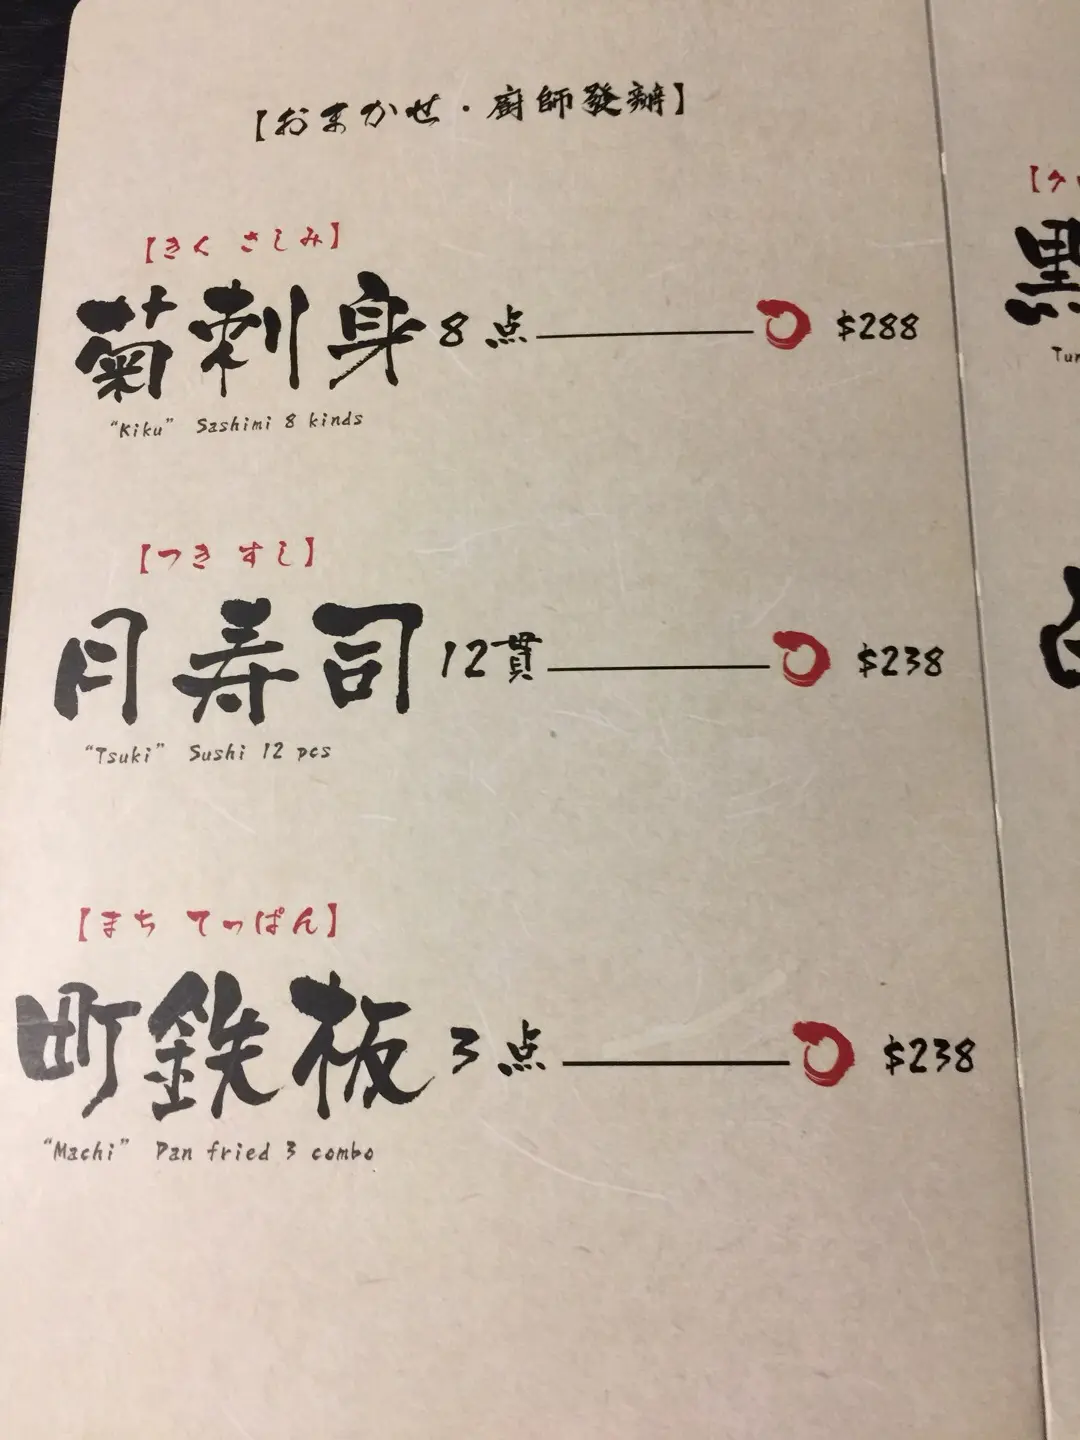 【おまかせ・廚師發辦】
【きく さしみ】
菊刺身8点 $288
"Kiku" Sashimi 8 kinds
【つき すし】
月寿司12貫 $238
"Tsuki" Sushi 12 pcs
【まち てっぱん】
町鉄板3点 $238
"Machi" Pan fried 3 combo
黒
Tur